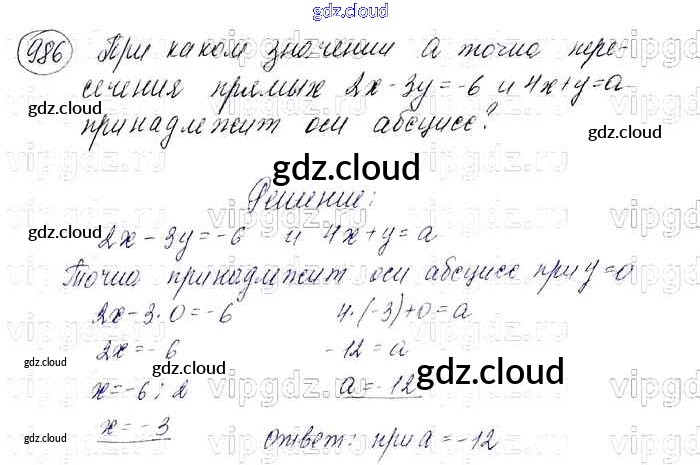 gdz.cloud
986 При каком значении а точка пере-
gdz.cloud
сечения прямых 2x-3y=-6 и 4x+y=a
принадлежит оси абсцисс?
gdz.cloud
gdz.cloud
gdz.cloud
Решение:
gdz.cloud
2x-3y=-6 и 4x+y=a
Точка принадлежит оси абсцисс при y=0
2x-3·0=-6 4·(-3)+0=a
gdz.cloud
2x=-6 -12=a
gdz.cloud
gdz.cloud
x=-6:2 a=-12
gdz.cloud
x=-3
gdz.cloud
gdz.cloud
ответ: при a=-12